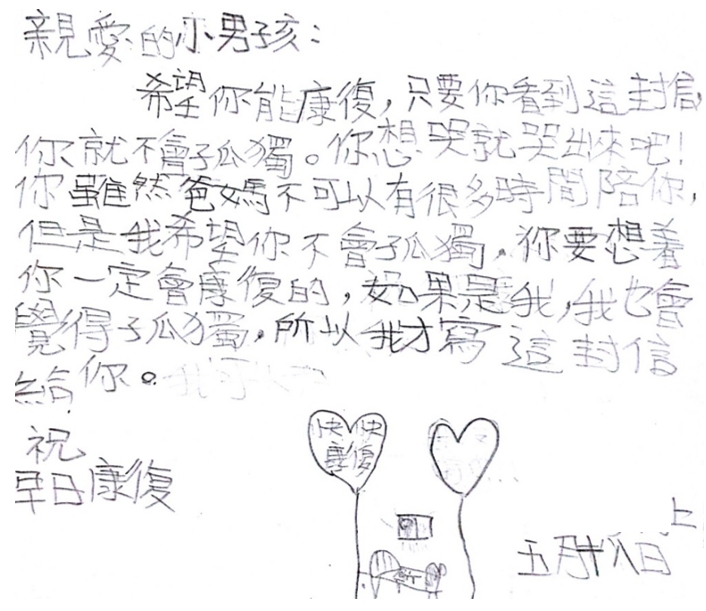 親愛的小男孩：
希望你能康復，只要你看到這封信，
你就不會孤獨。你想哭就哭出來吧！
你雖然爸媽不可以有很多時間陪你，
但是我希望你不會孤獨。你要想着
你一定會康復的，如果是我，我也會
覺得孤獨，所以我才寫這封信
給你。
祝
早日康復
快快
康復
上
五月十八日